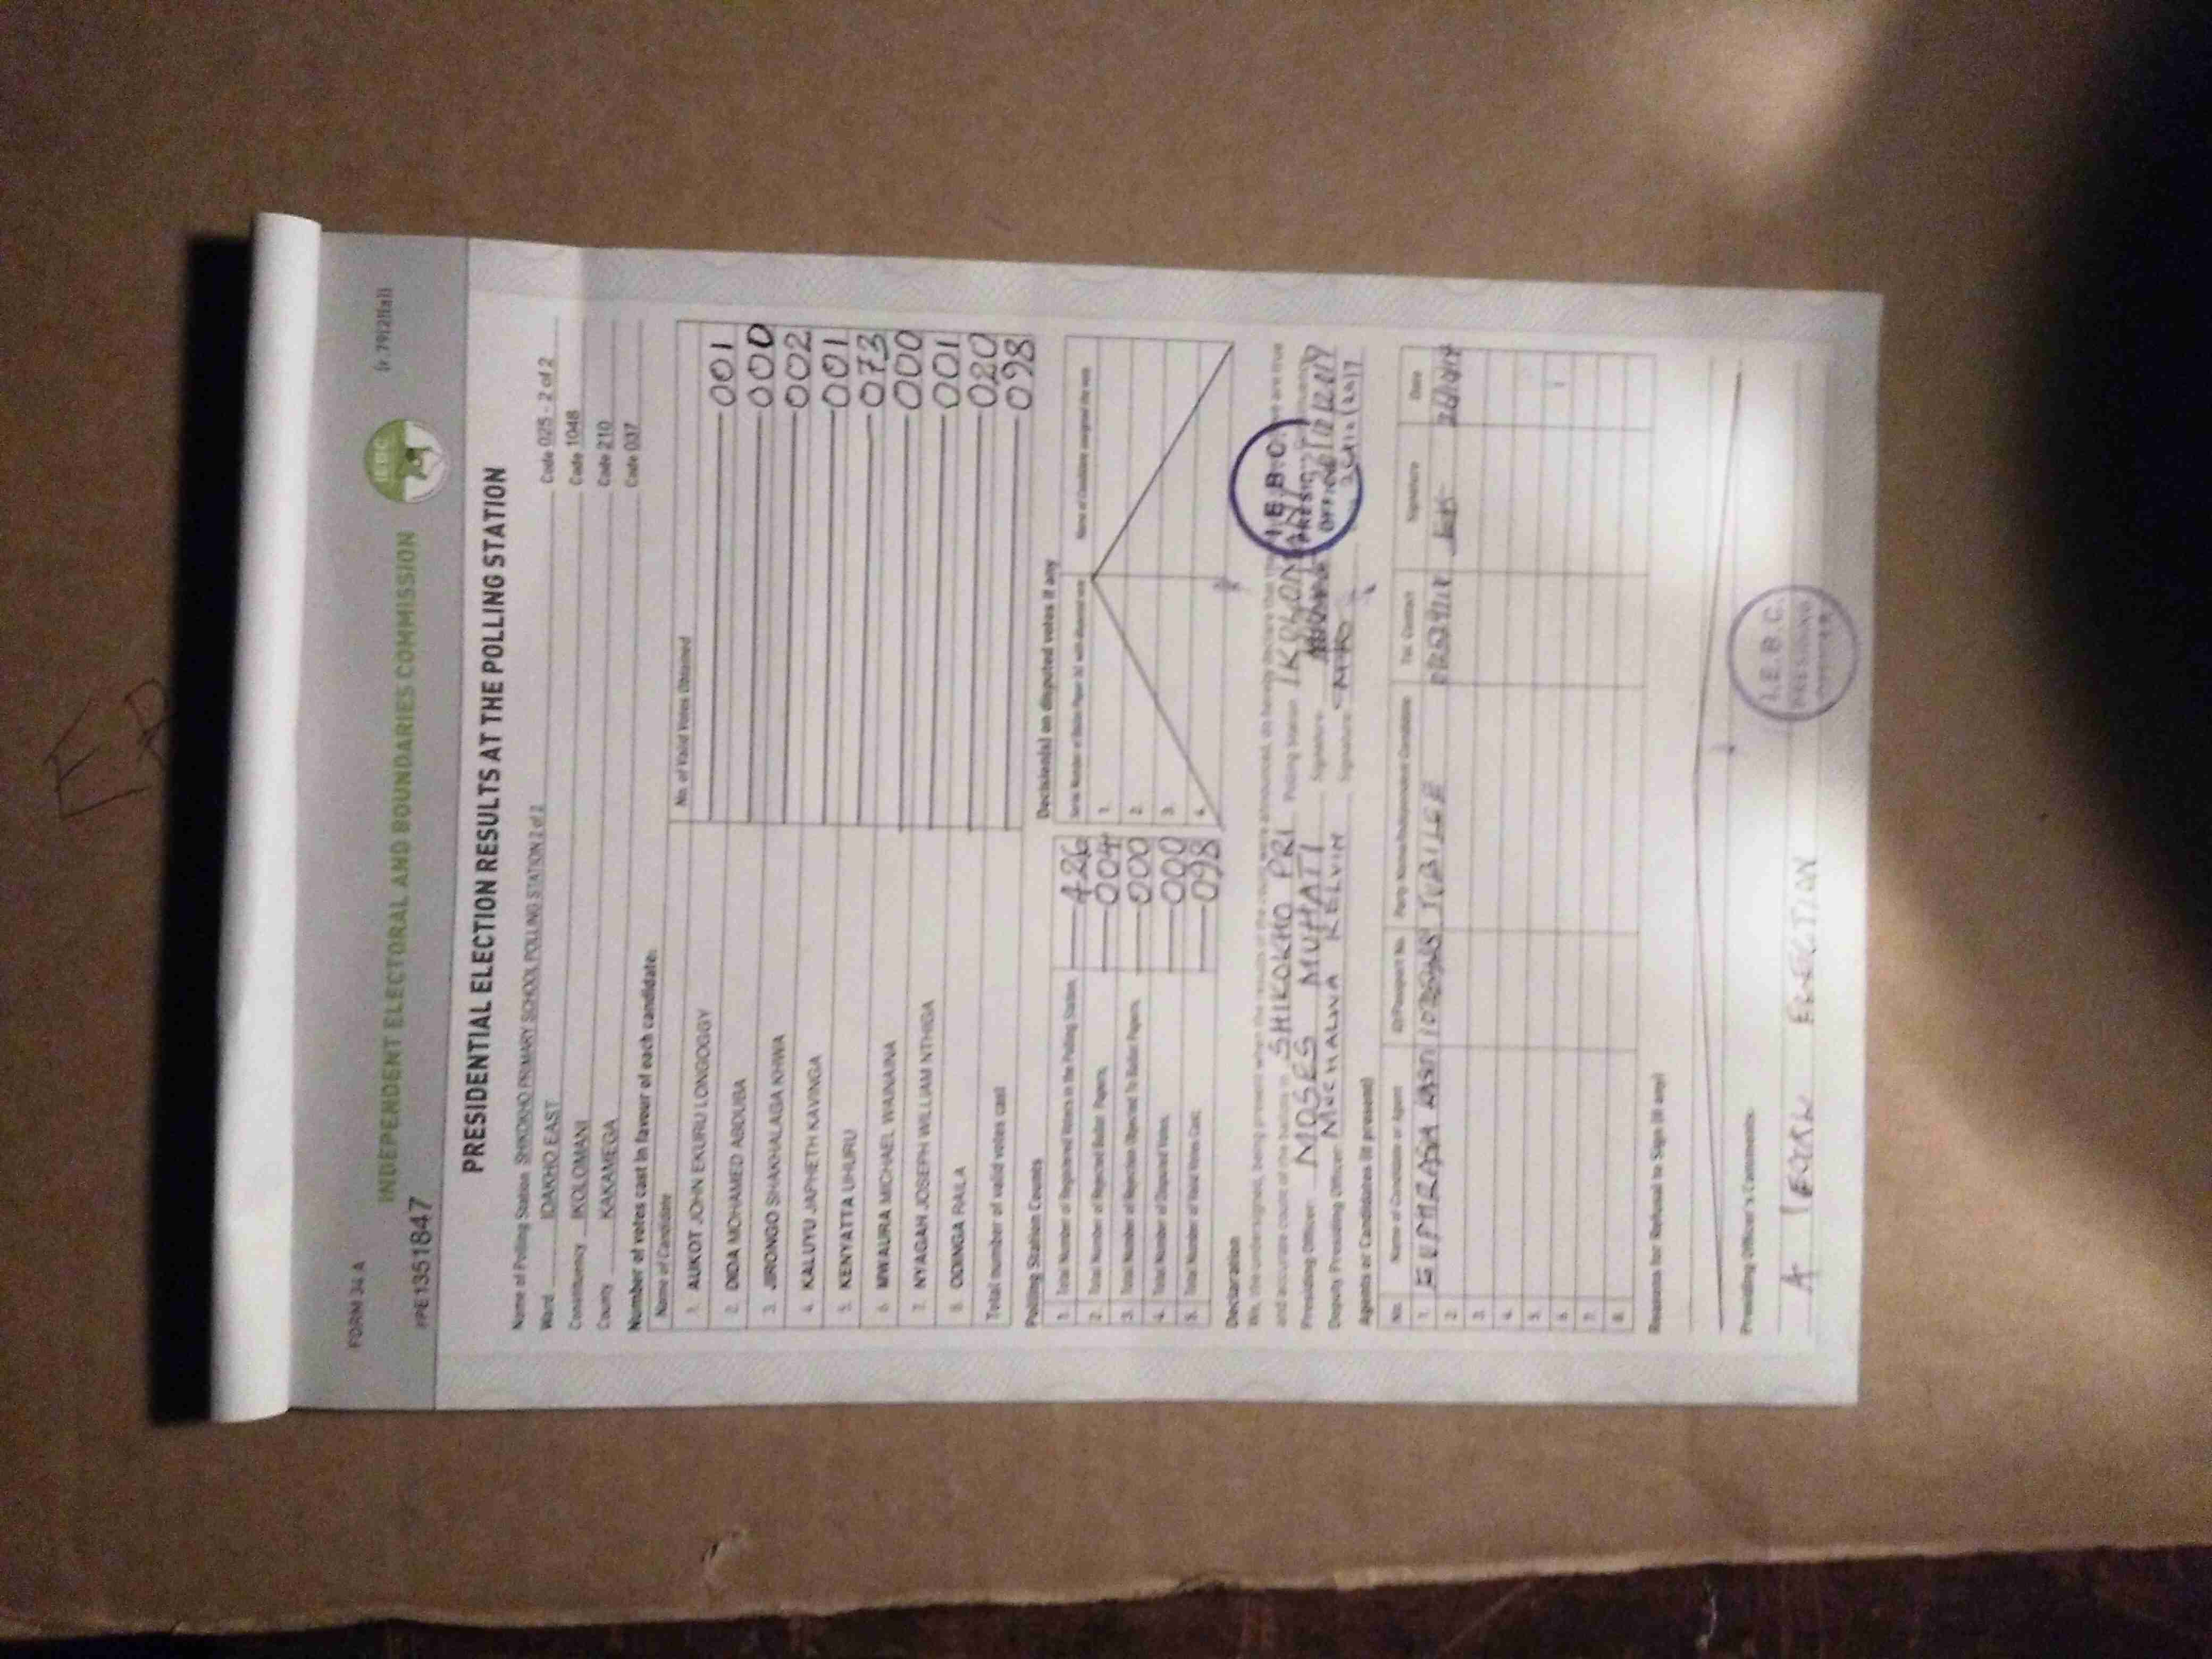 FORM 34 A
(r.79(2)(a))
IEBC
INDEPENDENT ELECTORAL AND BOUNDARIES COMMISSION
PRESIDENTIAL ELECTION RESULTS AT THE POLLING STATION
Name of Polling Station SHIKOKHO PRIMARY SCHOOL POLLING STATION 2 of 2
Ward IDAKHO EAST Code 025 - 2 of 2
Constituency IKOLOMANI Code 1048
County KAKAMEGA Code 210
Code 037
Number of votes cast in favour of each candidate:
Name of Candidate No. of Valid Votes Obtained
1. AUKOT JOHN EKURU LONGOGGY 001
2. DIDA MOHAMED ABDUBA 000
3. JIRONGO SHAKHALAGA KHWA 002
4. KALUYU JAPHETH KAVINGA 001
5. KENYATTA UHURU 073
6. MWAURA MICHAEL WAINAINA 000
7. NYAGAH JOSEPH WILLIAM NTHIGA 001
8. ODINGA RAILA 020
Total number of valid votes cast 098
Polling Station Counts
1. Total Number of Registered Voters in the Polling Station 426
2. Total Number of Rejected Ballot Papers 004
3. Total Number of Rejection Objected To Ballot Papers 000
4. Total Number of Disputed Votes 000
5. Total Number of Valid Votes Cast 098
Decision(s) on disputed votes if any
1.
2.
3.
4.
Declaration
We, the undersigned, being present when the results of the count were announced, do hereby declare that are true
and accurate count of the ballots in SHIKOKHO PRI Polling Station IKOLOMANI
Presiding Officer: MOSES MUHATI Signature
Deputy Presiding Officer: KELVIN Signature
I.E.B.C.
PRESIDING
Agents or Candidates (if present)
No. Name of Candidate or Agent ID/Passport No. Party Name/Independent Candidate Tel. Contact Signature Date
1. JUBILEE
2.
3.
4.
5.
6.
7.
8.
Reasons for Refusal to Sign (if any)
Presiding Officer's Comments:
A ELECTION
I.E.B.C.
PRESIDING